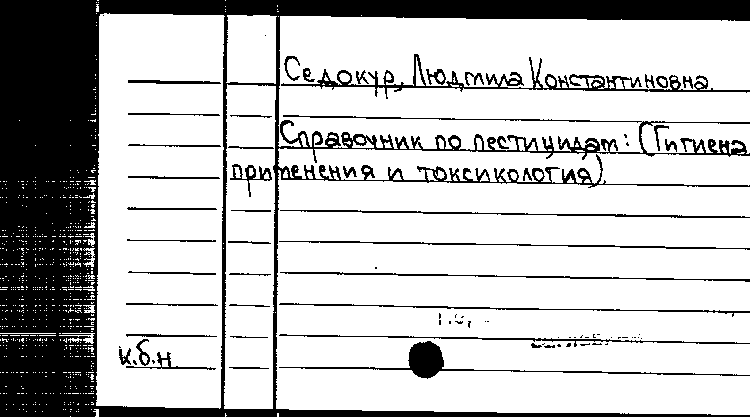 Седокур, Людмила Константиновна.
Справочник по пестицидам: (Гигиена
применения и токсикология).
к.б.н.